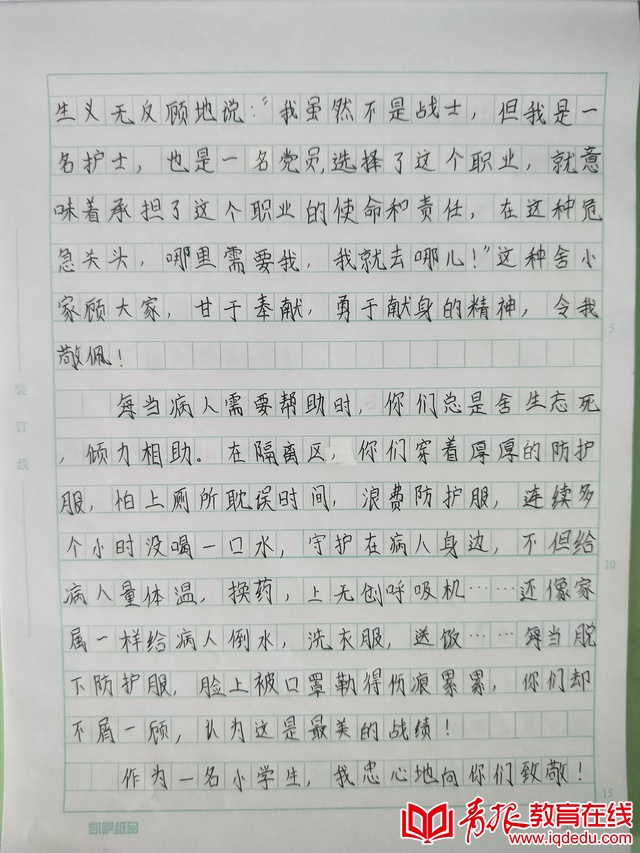 生义无反顾地说："我虽然不是战士，但我是一
名护士，也是一名党员，选择了这个职业，就意
味着承担了这个职业的使命和责任，在这种危
急关头，哪里需要我，我就去哪儿！"这种舍小
家顾大家，甘于奉献，勇于献身的精神，令我
敬佩！
5
每当病人需要帮助时，你们总是舍生忘死
，倾力相助。在隔离区，你们穿着厚厚的防护
服，怕上厕所耽误时间，浪费防护服，连续多
个小时没喝一口水，守护在病人身边，不但给
10
病人量体温，换药，上无创呼吸机……还像家
属一样给病人倒水，洗衣服，送饭……每当脱
下防护服，脸上被口罩勒得伤痕累累，你们却
不屑一顾，认为这是最美的战绩！
作为一名小学生，我忠心地向你们致敬！
15
装订线
青报教育在线
www.iqdedu.com